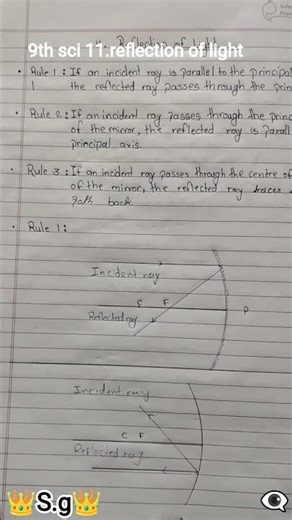 4. Reflection of Light
9th sci 11.reflection of light
• Rule 1 : If an incident ray is parallel to the principal
1 the reflected ray passes through the prin
• Rule 2 : If an incident ray passes through the princ
of the mirror, the reflected ray is parall
principal axis.
• Rule 3 : If an incident ray passes through the centre of
of the mirror, the reflected ray traces
path back.
• Rule 1 :
Incident ray
C F
P
Reflected ray
Incident ray
C F
Reflected ray
👑S.g👑